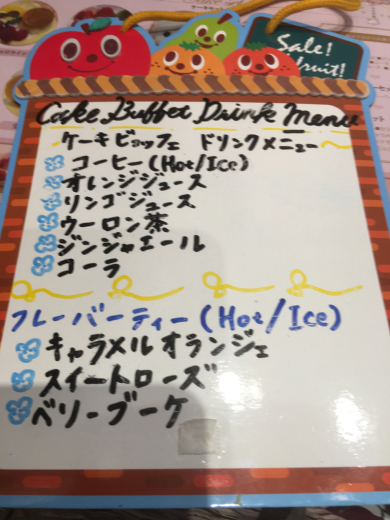 Sale!
fruit!
Cake Buffet Drink Menu
ケーキビュッフェ ドリンクメニュー
コーヒー(Hot/Ice)
オレンジジュース
リンゴジュース
ウーロン茶
ジンジャエール
コーラ
フレーバーティー(Hot/Ice)
キャラメルオランジェ
スイートローズ
ベリーブーケ